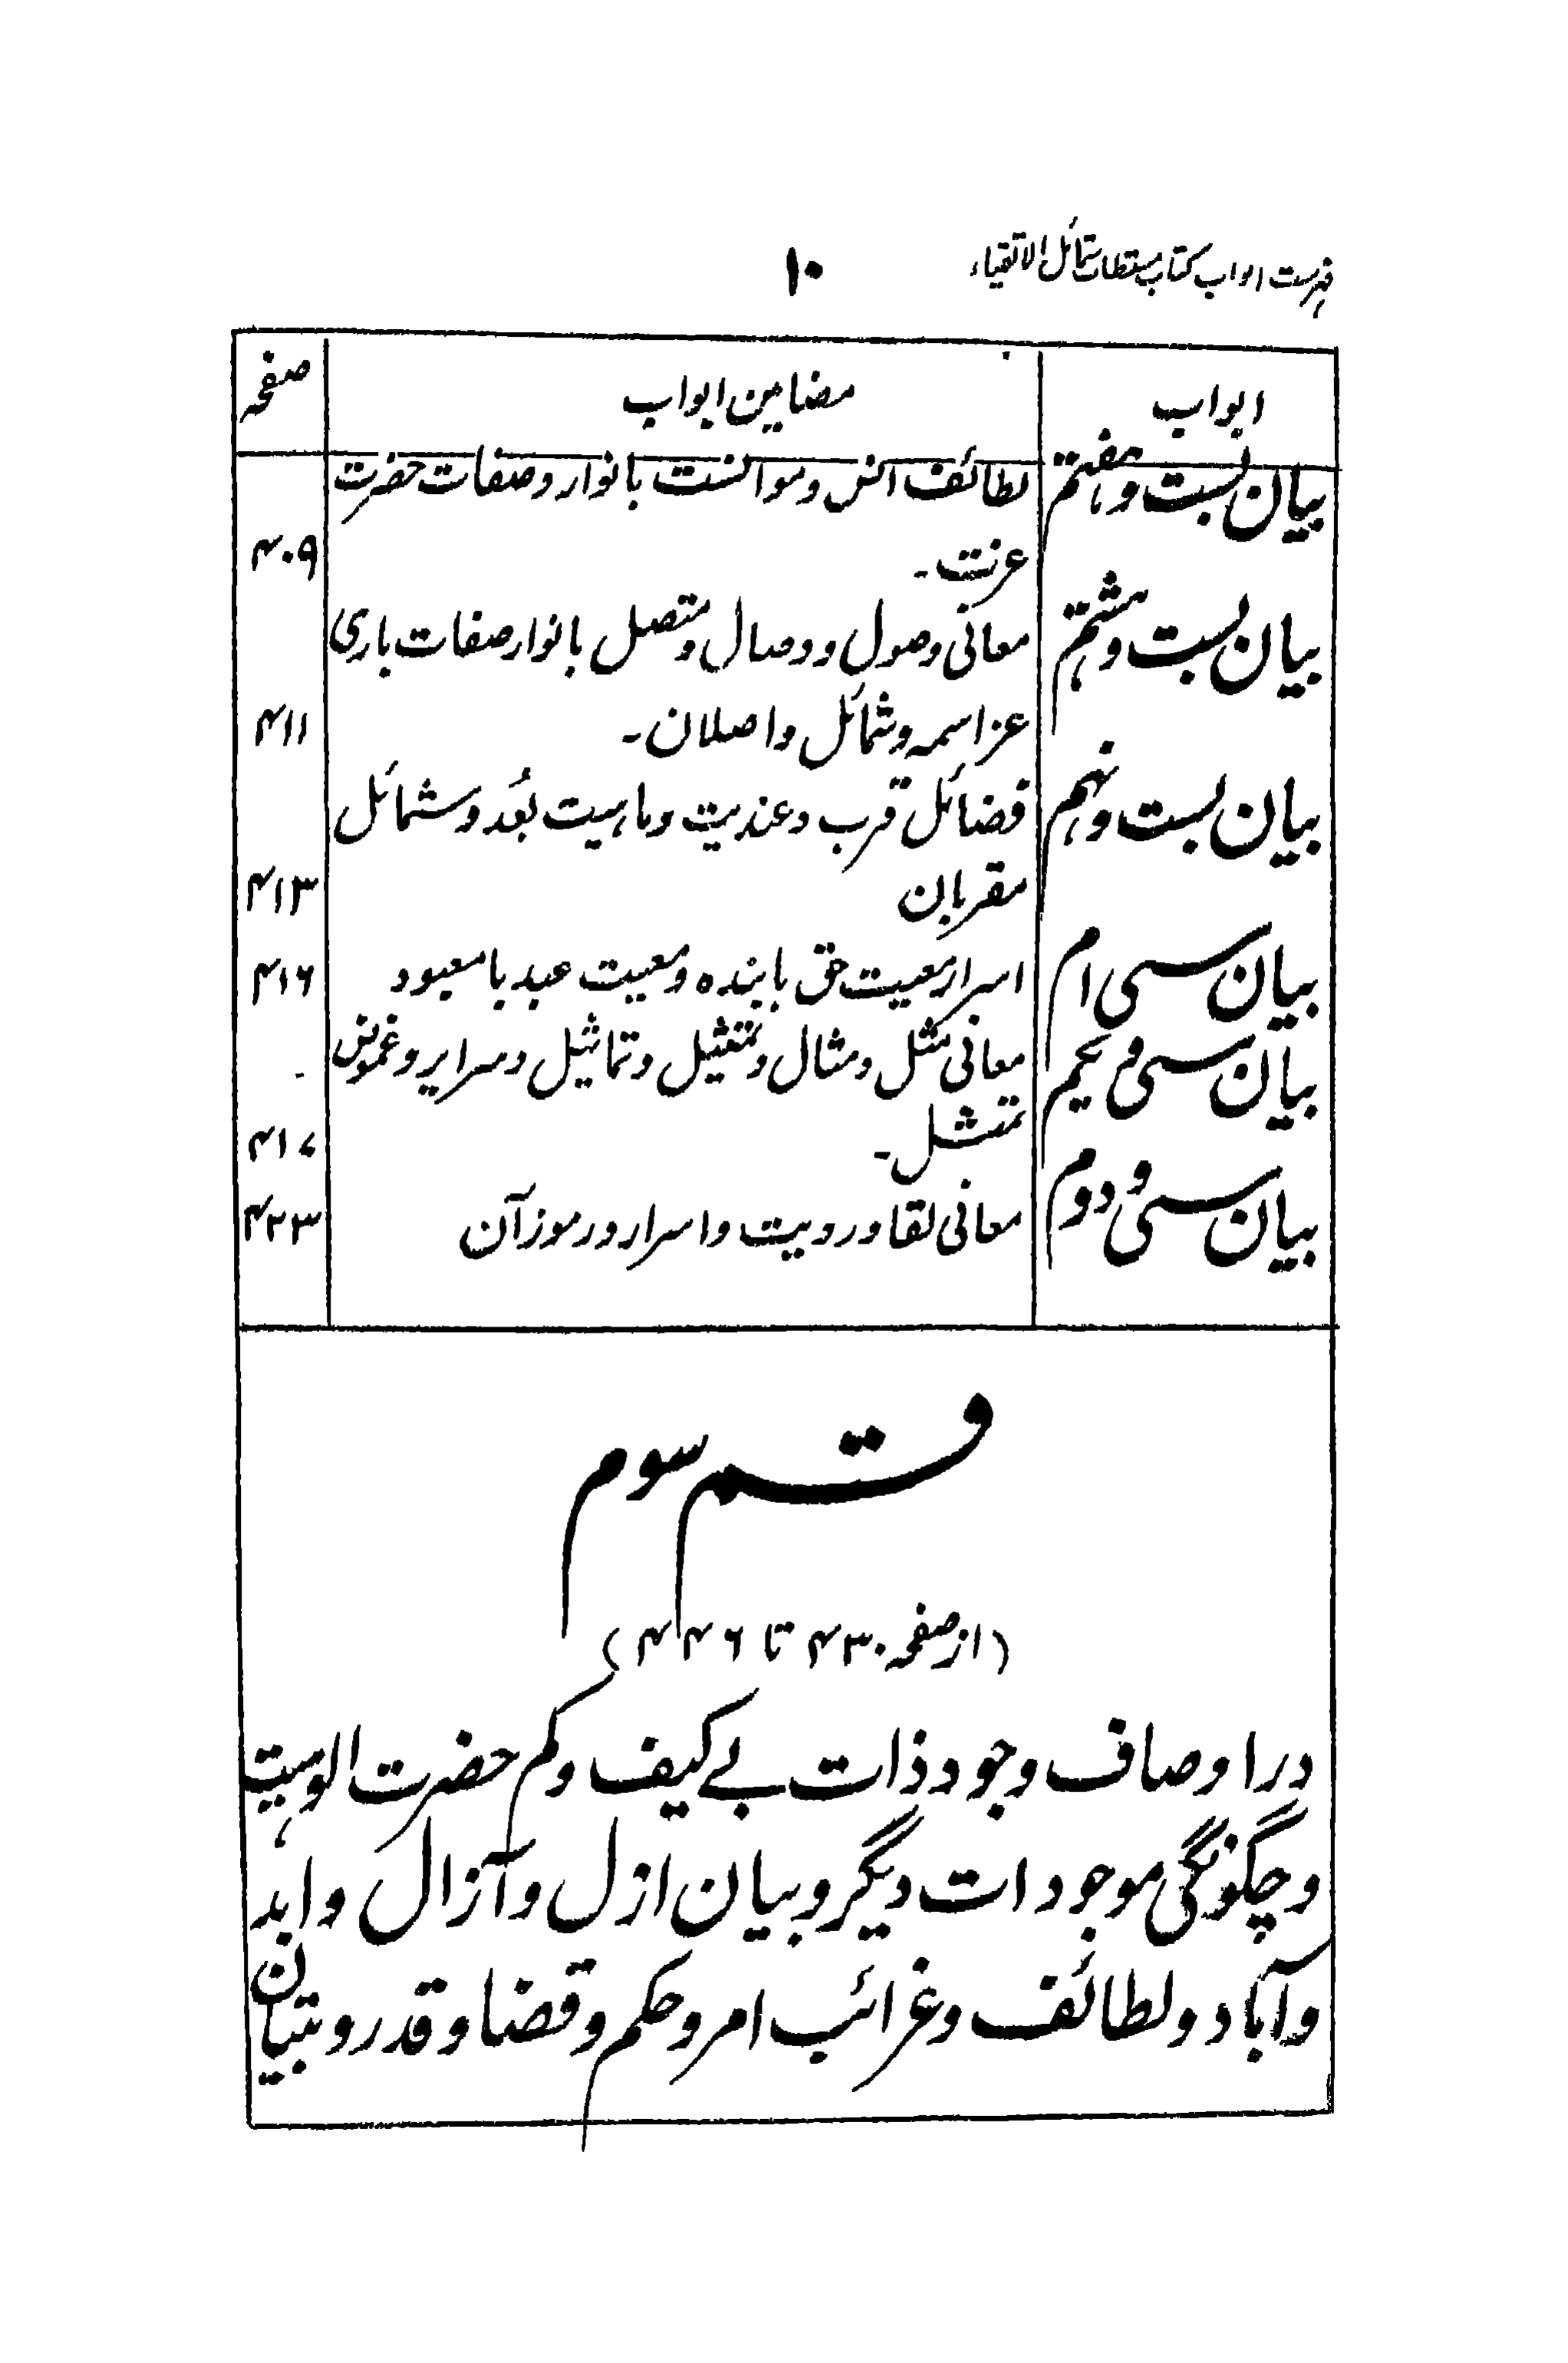 فہرست ابواب کتاب مستطاب شمائل الاتقیاء ۱۰
ابواب مضامین ابواب صفحہ
بیان بست و ہفتم لطائف انس و موانست با نوار و صفات حضرت
عزت۔ ۴۰۹
بیان بست و ہشتم معانی وصول و وصال و متصل با نوار صفات باری
عز اسمہ و شمائل واصلان۔ ۴۱۱
بیان بست و نہم فضائل قرب و عندیت و ماہیت بُعد و شمائل
مقربان ۴۱۳
بیان سی ام اسرار معیت حق با بندہ و معیت عبد با معبود ۴۱۶
بیان سی و یکم معانی مثل و مثال و تمثیل و تماثیل و سرایر و غموض
تمثل۔ ۴۱۷
بیان سی و دوم معانی لقا و رویت و اسرار و رموز آن ۴۲۳
قسم سوم
(از صفحہ ۴۳۰ تا ۴۴۶)
در اوصاف وجود ذات بے کیف و کم حضرت الوہیت
و چگونگی موجودات دیگر و بیان ازل و آزال و ابد
و آباد و لطائف و غرائب امر و حکم و قضا و قدر و تبیان